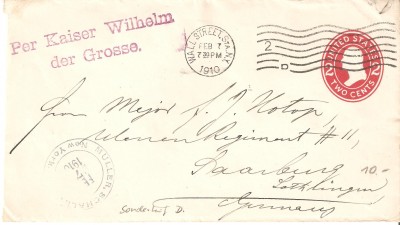 Per Kaiser Wilhelm
der Grosse.
WALL STREET, STA. N.Y.
FEB 7
7 30 PM
1910
2
D
UNITED STATES
2 2
TWO CENTS
Herrn Major J. J. Notop,
Ulanen Regiment # 11,
Saarburg
10.-
Lothringen
Germany
MULLER, SCHALL
New York
FEB
7
1910
D.